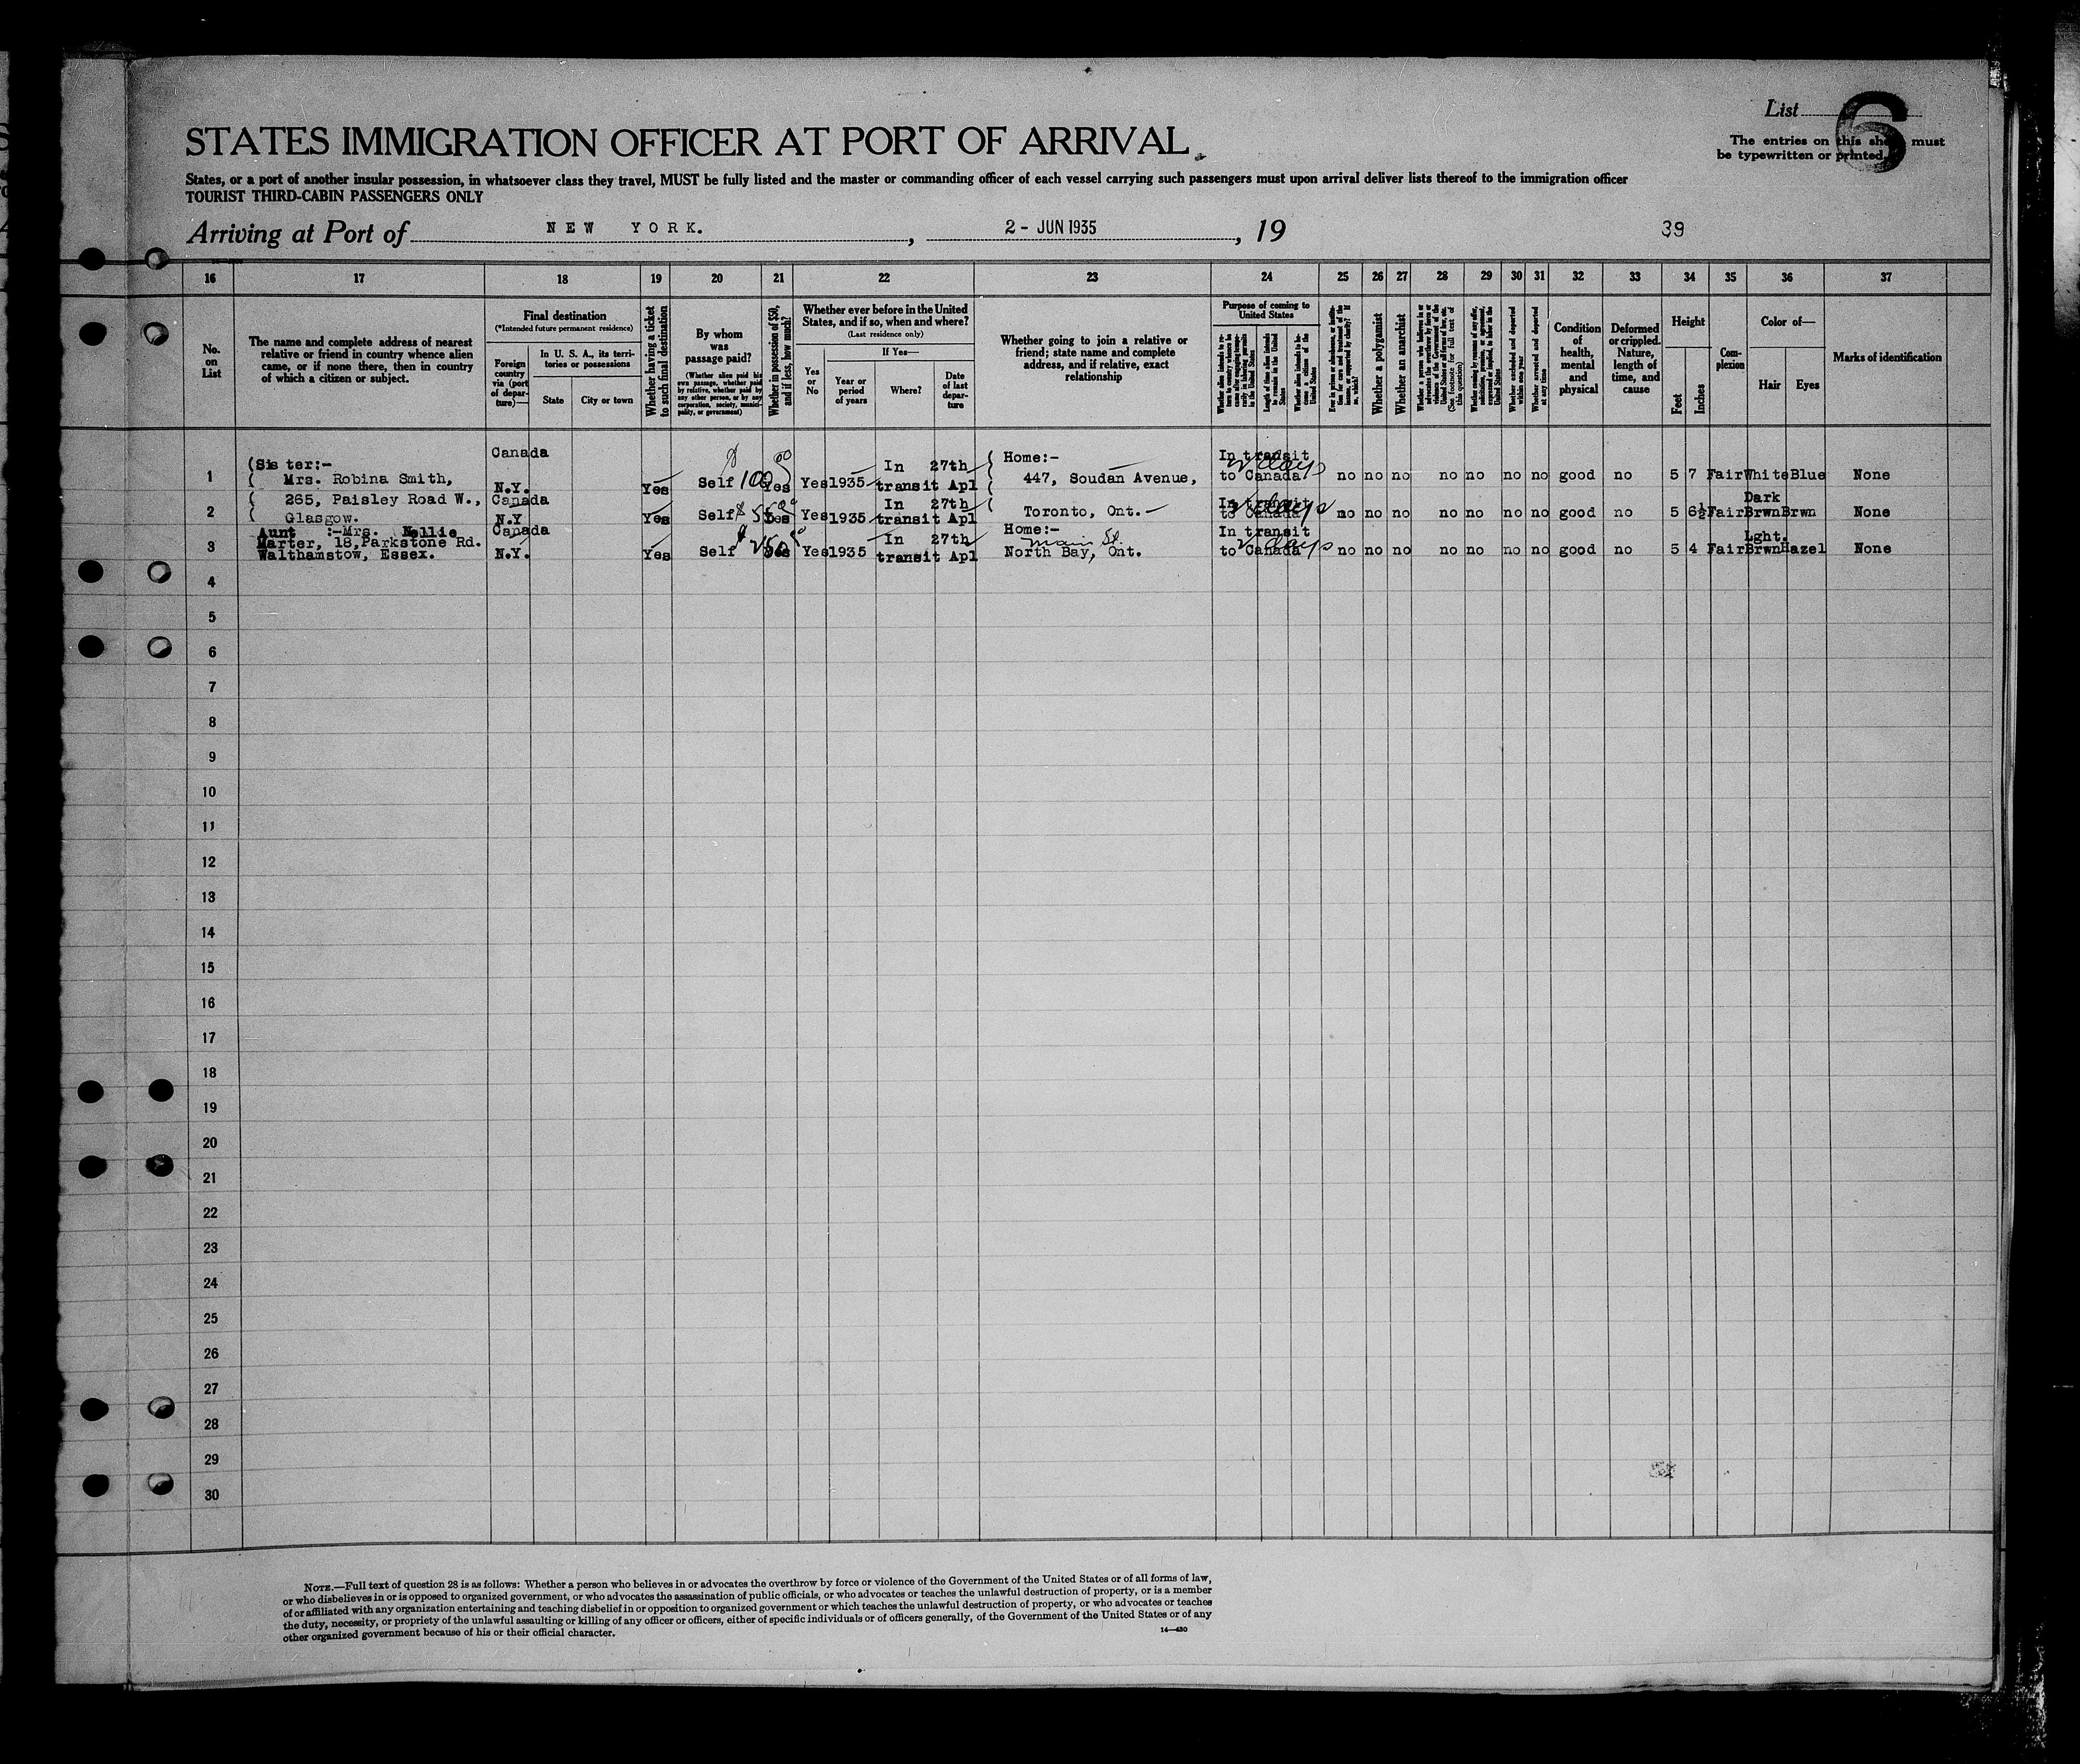 List 6
The entries on this sheet must
be typewritten or printed.
STATES IMMIGRATION OFFICER AT PORT OF ARRIVAL
States, or a port of another insular possession, in whatsoever class they travel, MUST be fully listed and the master or commanding officer of each vessel carrying such passengers must upon arrival deliver lists thereof to the immigration officer
TOURIST THIRD-CABIN PASSENGERS ONLY
Arriving at Port of NEW YORK. , 2 - JUN 1935 , 19 39
16 17 18 19 20 21 22 23 24 25 26 27 28 29 30 31 32 33 34 35 36 37
No.
on
List
The name and complete address of nearest
relative or friend in country whence alien
came, or if none there, then in country
of which a citizen or subject.
Final destination
(*Intended future permanent residence)
Foreign
country
via (port
of depar-
ture)—
In U. S. A., its terri-
tories or possessions
State City or town
Whether having a ticket
to such final destination
By whom
was
passage paid?
(Whether alien paid his
own passage, whether paid
by relative, whether paid by
any other person, or by any
corporation, society, munici-
pality, or government)
Whether in possession of $50,
and if less, how much?
Whether ever before in the United
States, and if so, when and where?
(Last residence only)
Yes
or
No
If Yes—
Year or
period
of years
Where?
Date
of last
depar-
ture
Whether going to join a relative or
friend; state name and complete
address, and if relative, exact
relationship
Purpose of coming to
United States
Whether alien intends to re-
turn to country whence he
came after engaging tempo-
rarily in laboring pursuits
in the United States
Length of time alien intends
to remain in the United
States
Whether alien intends to be-
come a citizen of the
United States
Whether a polygamist
Whether an anarchist
(See footnote for full text of
this question)
Whether excluded and deported
within one year
Whether arrested and deported
at any time
Condition
of
health,
mental
and
physical
Deformed
or crippled.
Nature,
length of
time, and
cause
Height
Feet
Inches
Com-
plexion
Color of—
Hair Eyes
Marks of identification
1 (Sister:- Canada $ 00 In 27th Home:- In transit
Mrs. Robina Smith, N.Y. Yes Self 100 Yes Yes 1935 transit Apl 447, Soudan Avenue, to Canada 2 days no no no no no no no good no 5 7 Fair White Blue None
2 265, Paisley Road W., Canada In 27th In transit Dark
Glasgow. N.Y. Yes Self $ Yes Yes 1935 transit Apl Toronto, Ont. to Canada 2 days no no no no no no no good no 5 6½ Fair Brwn Brwn None
3 Aunt :-Mrs. Nellie Canada Home:- In transit
Marter, 18, Parkstone Rd. In 27th Main St. Lght.
Walthamstow, Essex. N.Y. Yes Self $ Yes Yes 1935 transit Apl North Bay, Ont. to Canada 2 days no no no no no no no good no 5 4 Fair Brwn Hazel None
4
5
6
7
8
9
10
11
12
13
14
15
16
17
18
19
20
21
22
23
24
25
26
27
28
29
30
NOTE.—Full text of question 28 is as follows: Whether a person who believes in or advocates the overthrow by force or violence of the Government of the United States or of all forms of law,
or who disbelieves in or is opposed to organized government, or who advocates the assassination of public officials, or who advocates or teaches the unlawful destruction of property, or is a member
of or affiliated with any organization entertaining and teaching disbelief in or opposition to organized government or which teaches the unlawful destruction of property, or who advocates or teaches
the duty, necessity, or propriety of the unlawful assaulting or killing of any officer or officers, either of specific individuals or of officers generally, of the Government of the United States or of any
other organized government because of his or their official character.
14—430